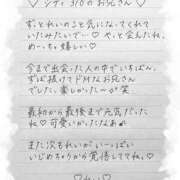 ♡ シティ 310のお兄さん ♡
ずっとれいのこと気になってくれて
いたみたいでー♡ やっと会えたね♡
めーっちゃ嬉しい♡
今まで出会った人の中でいちばん、
ずば抜けてドMなお兄さん
でした、楽しかったーが笑
最初から最後まで元気だった
ね♡可愛いかったなあが
また次もれいが いーっぱい
いじめちゃうから覚悟しててねっ♡
♡れい♡